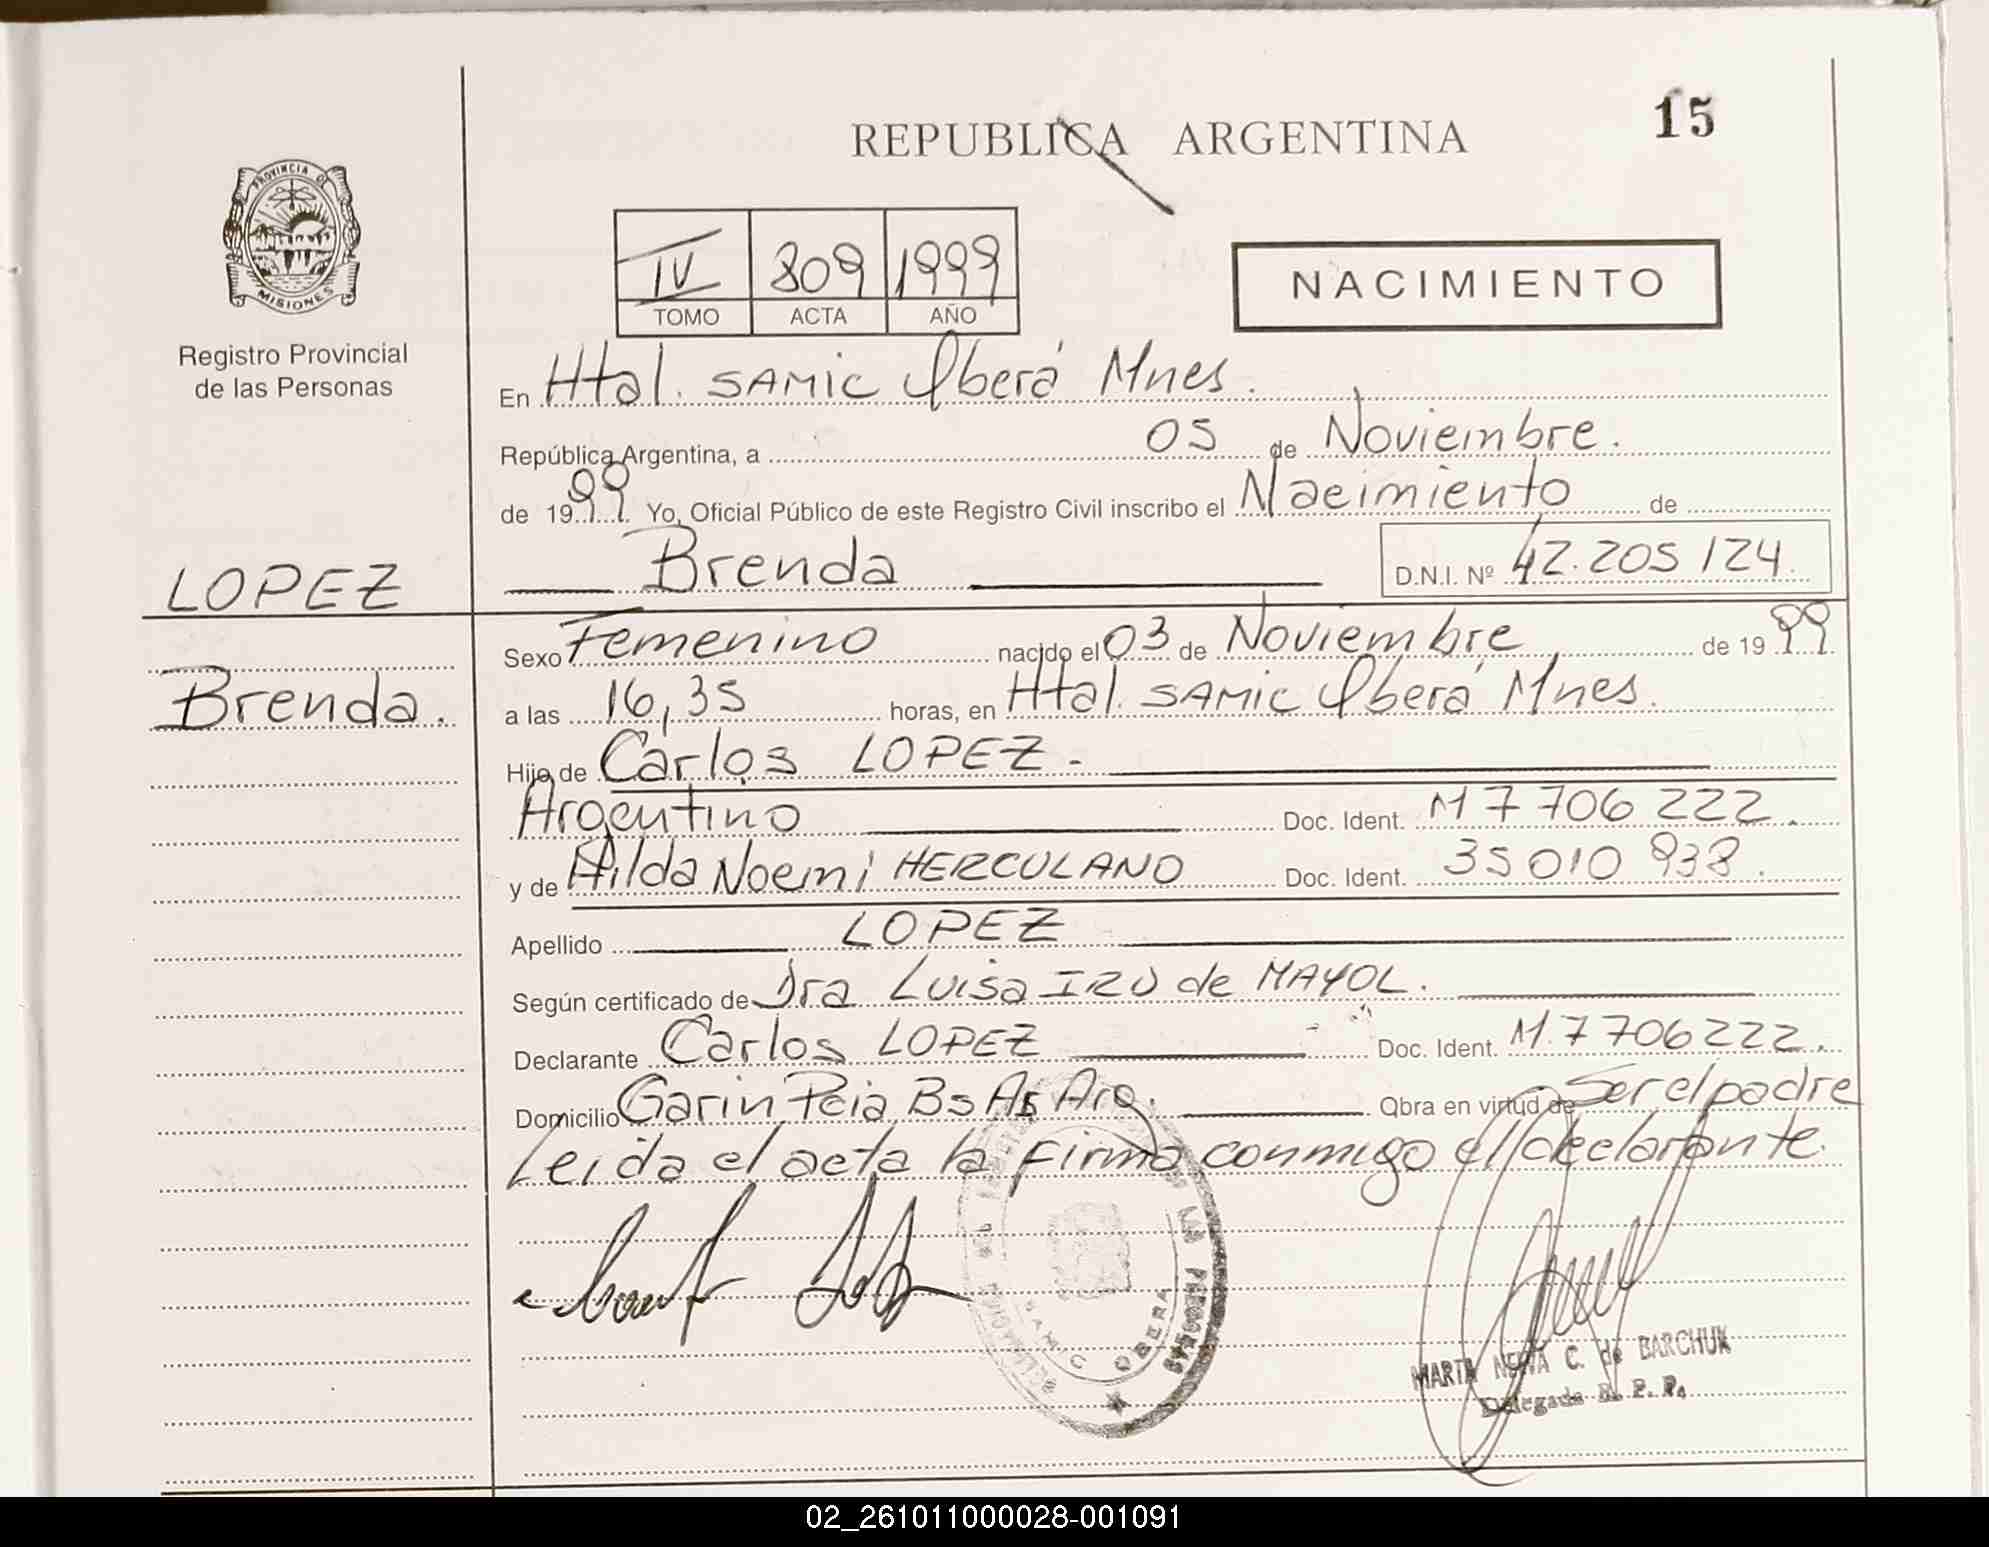 REPUBLICA ARGENTINA
15
PROVINCIA DE
MISIONES
Registro Provincial
de las Personas
IV 809 1999
TOMO ACTA AÑO
NACIMIENTO
En Htal. SAMIC Oberá Mnes.
República Argentina, a 05 de Noviembre.
de 1999 Yo, Oficial Público de este Registro Civil inscribo el Nacimiento de
Brenda D.N.I. Nº 42.205 124.
LOPEZ
Brenda.
Sexo Femenino nacido el 03 de Noviembre de 1999
a las 16,35 horas, en Htal. SAMIC Oberá Mnes.
Hijo de Carlos LOPEZ.
Argentino Doc. Ident. M 7 706 222.
y de Hilda Noemi HERCULANO Doc. Ident. 35 010 938.
Apellido LOPEZ
Según certificado de Dra Luisa IZU de MAYOL.
Declarante Carlos LOPEZ Doc. Ident. M. 7 706 222.
Domicilio Garin Pcia Bs As Arg. Obra en virtud de Ser el padre
Leida el acta la firma conmigo el declarante.
LA PERSONAS
SAMIC OBERA
MARTA C. de BARCHUK
Delegada R. P. P.
02_261011000028-001091